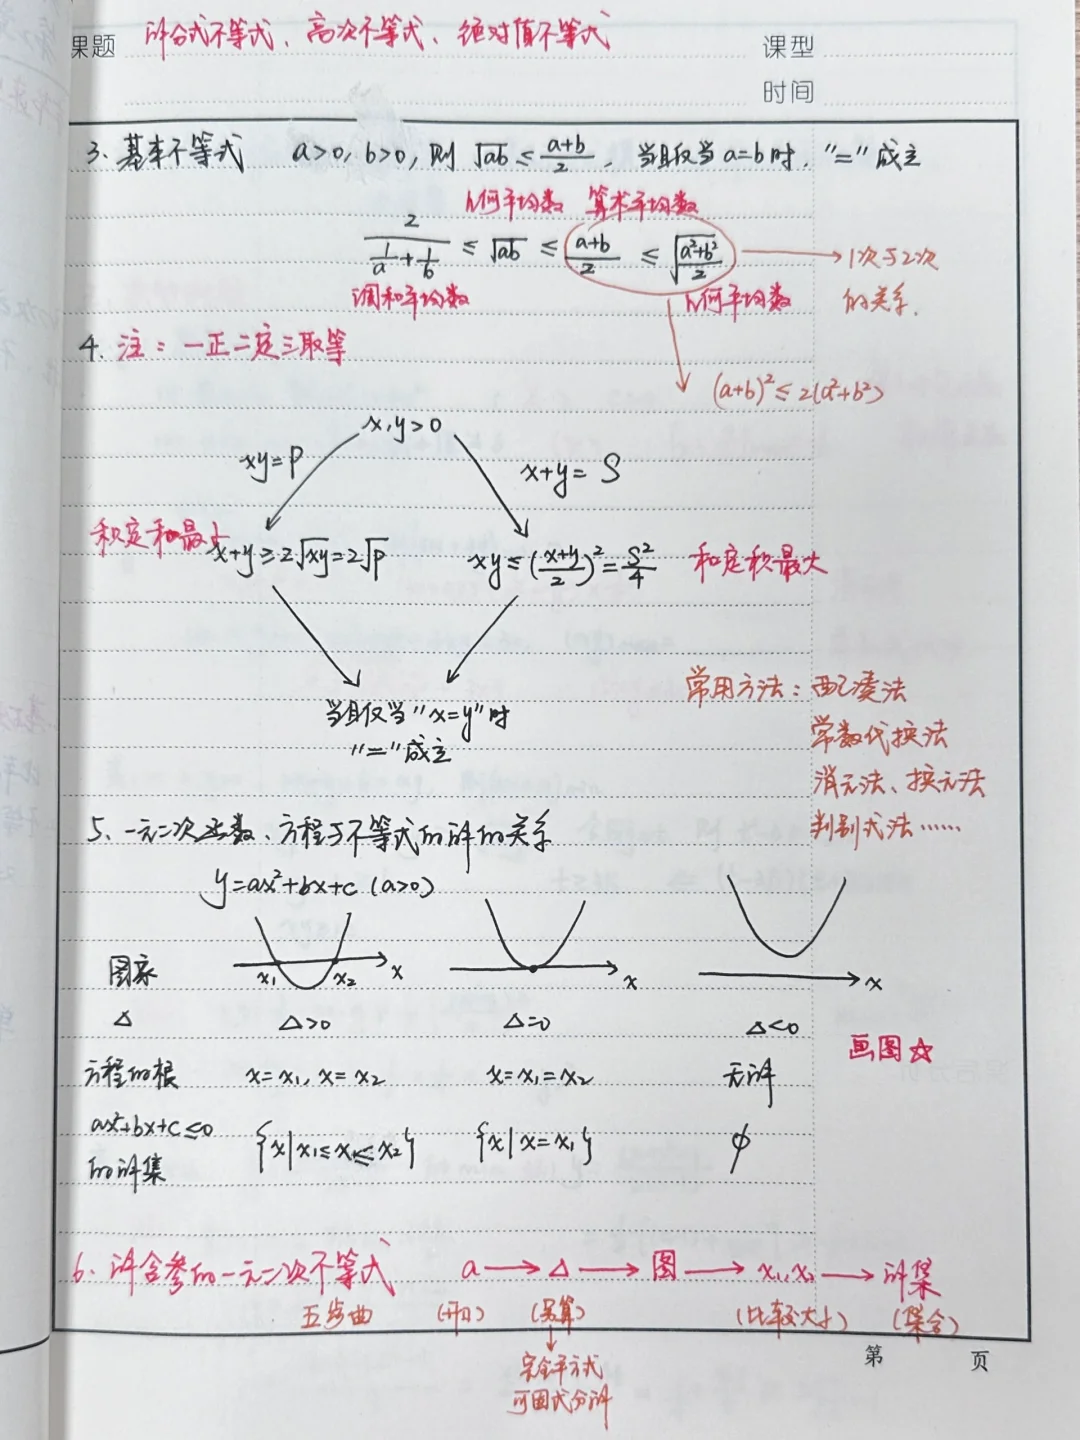 课题 解分式不等式、高次不等式、绝对值不等式 课型
时间
3. 基本不等式 a>0, b>0, 则 √ab ≤ (a+b)/2, 当且仅当 a=b 时, "=" 成立
几何平均数 算术平均数
2/(1/a + 1/b) ≤ √ab ≤ (a+b)/2 ≤ √((a²+b²)/2) → 1次与2次
调和平均数 几何平均数 的关系.
4. 注: 一正二定三取等
(a+b)² ≤ 2(a²+b²)
x, y > 0
xy = P x+y = S
积定和最小 x+y ≥ 2√xy = 2√P xy ≤ ((x+y)/2)² = S²/4 和定积最大
常用方法: 配凑法
当且仅当 "x=y" 时
常数代换法
"=" 成立
消元法、换元法
判别式法……
5. 一元二次函数、方程与不等式的解的关系
y = ax² + bx + c (a>0)
图象 x₁ x₂ x x x
Δ Δ>0 Δ=0 Δ<0
画图☆
方程的根 x = x₁, x = x₂ x = x₁ = x₂ 无解
ax²+bx+c ≤ 0
的解集 {x | x₁ ≤ x ≤ x₂} {x | x = x₁} ϕ
6. 解含参的一元二次不等式 a → Δ → 图 → x₁, x₂ → 解集
五步曲 (开口) (另算) (比较大小) (集合)
↓
完全平方式
可因式分解
第 页